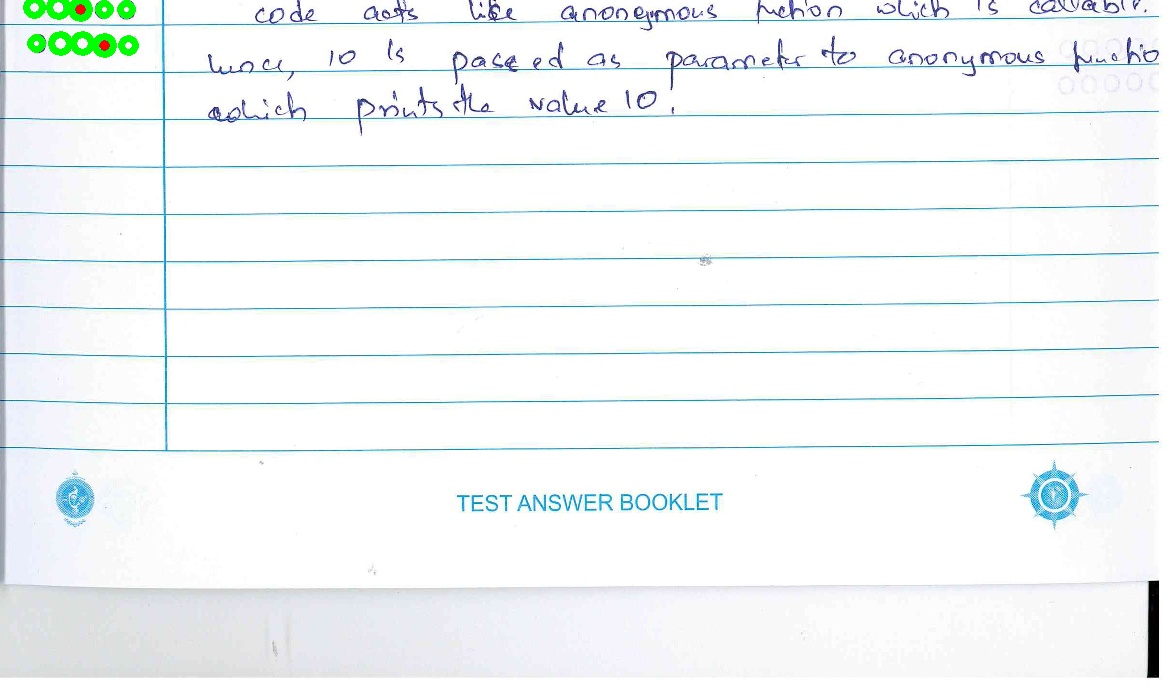 code acts like anonymous function which is callable.
hence, 10 is passed as parameter to anonymous functio
which prints the value 10.
TEST ANSWER BOOKLET